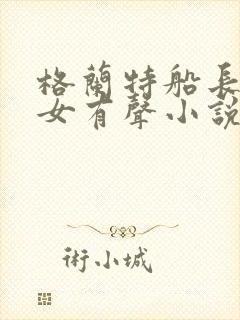 格蘭特船長
女有聲小說
術小城